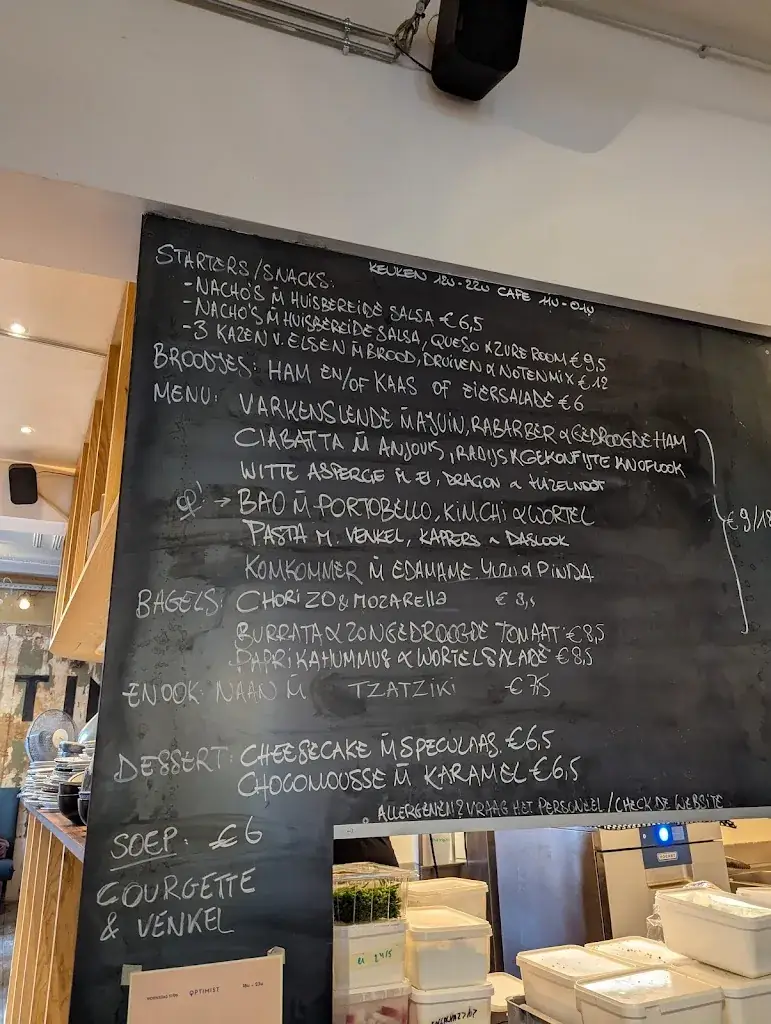 KEUKEN 12U-22U CAFE 11U-01U
STARTERS/SNACKS:
-NACHO'S M̄ HUISBEREIDE SALSA €6,5
-NACHO'S M̄ HUISBEREIDE SALSA, QUESO & ZURE ROOM €9,5
-3 KAZEN V. ELSEN M̄ BROOD, DRUIVEN & NOTENMIX €12
BROODJES: HAM EN/OF KAAS OF EIERSALADE €6
MENU: VARKENSLENDE M̄ AJUIN, RABARBER & GEDROOGDE HAM
CIABATTA M̄ ANJOVIS, RADIJS & GEKONFIJTE KNOFLOOK
WITTE ASPERGE M̄ EI, DRAGON & HAZELNOOT
→ BAO M̄ PORTOBELLO, KIMCHI & WORTEL
PASTA M. VENKEL, KAPPERS & DASLOOK
KOMKOMMER M̄ EDAMAME YUZU & PINDA
€9/18
BAGELS: CHORIZO & MOZARELLA €
BURRATA & ZONGEDROOGDE TOMAAT €8,5
PAPRIKAHUMMUS & WORTELSALADE €8,5
EN OOK: NAAN M̄ TZATZIKI €7,5
DESSERT: CHEESECAKE M̄ SPECULAAS €6,5
CHOCOMOUSSE M̄ KARAMEL €6,5
ALLERGENEN? VRAAG HET PERSONEEL/CHECK DE WEBSITE
SOEP: €6
COURGETTE
& VENKEL
OPTIMIST